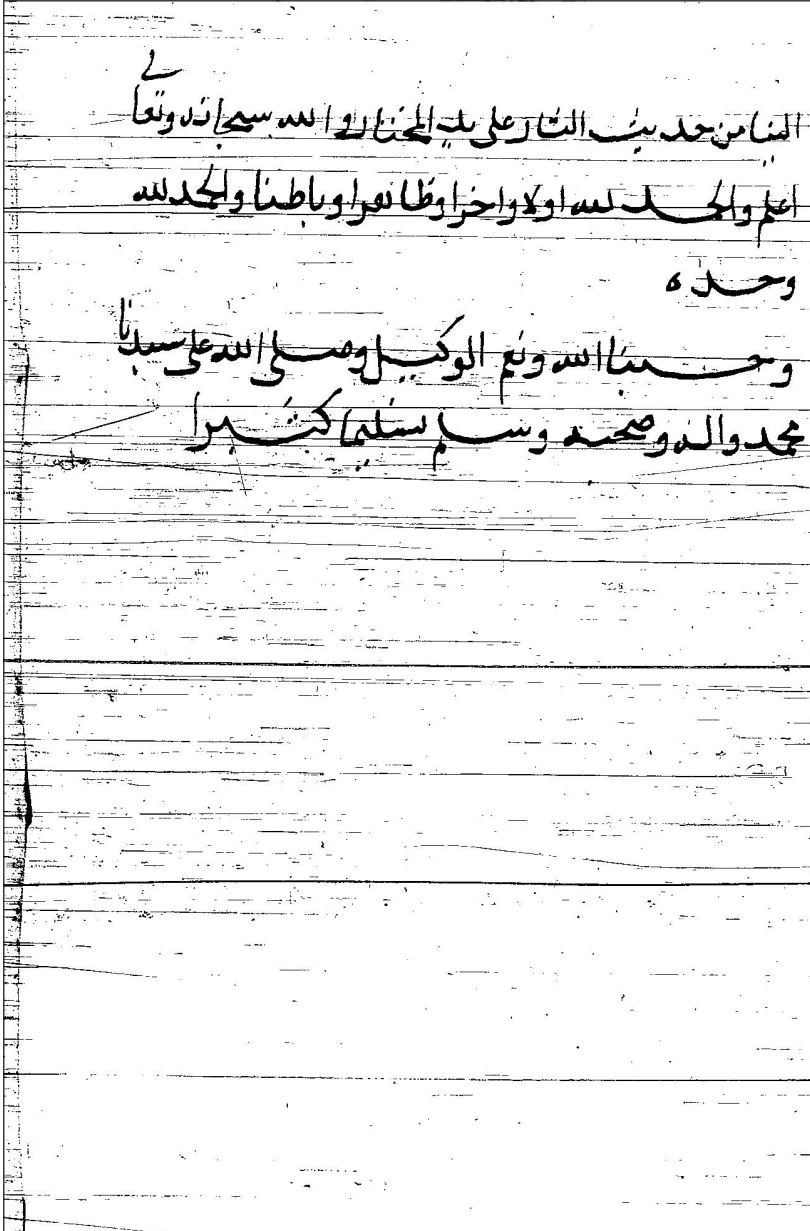 الينا من حديث الثار على يد المختار والله سبحانه وتعالى
اعلم والحمد لله اولا واخرا وظاهرا وباطنا والحمد لله
وحده
وحسبنا الله ونعم الوكيل وصلى الله على سيدنا
محمد واله وصحبه وسلم تسليما كثيرا